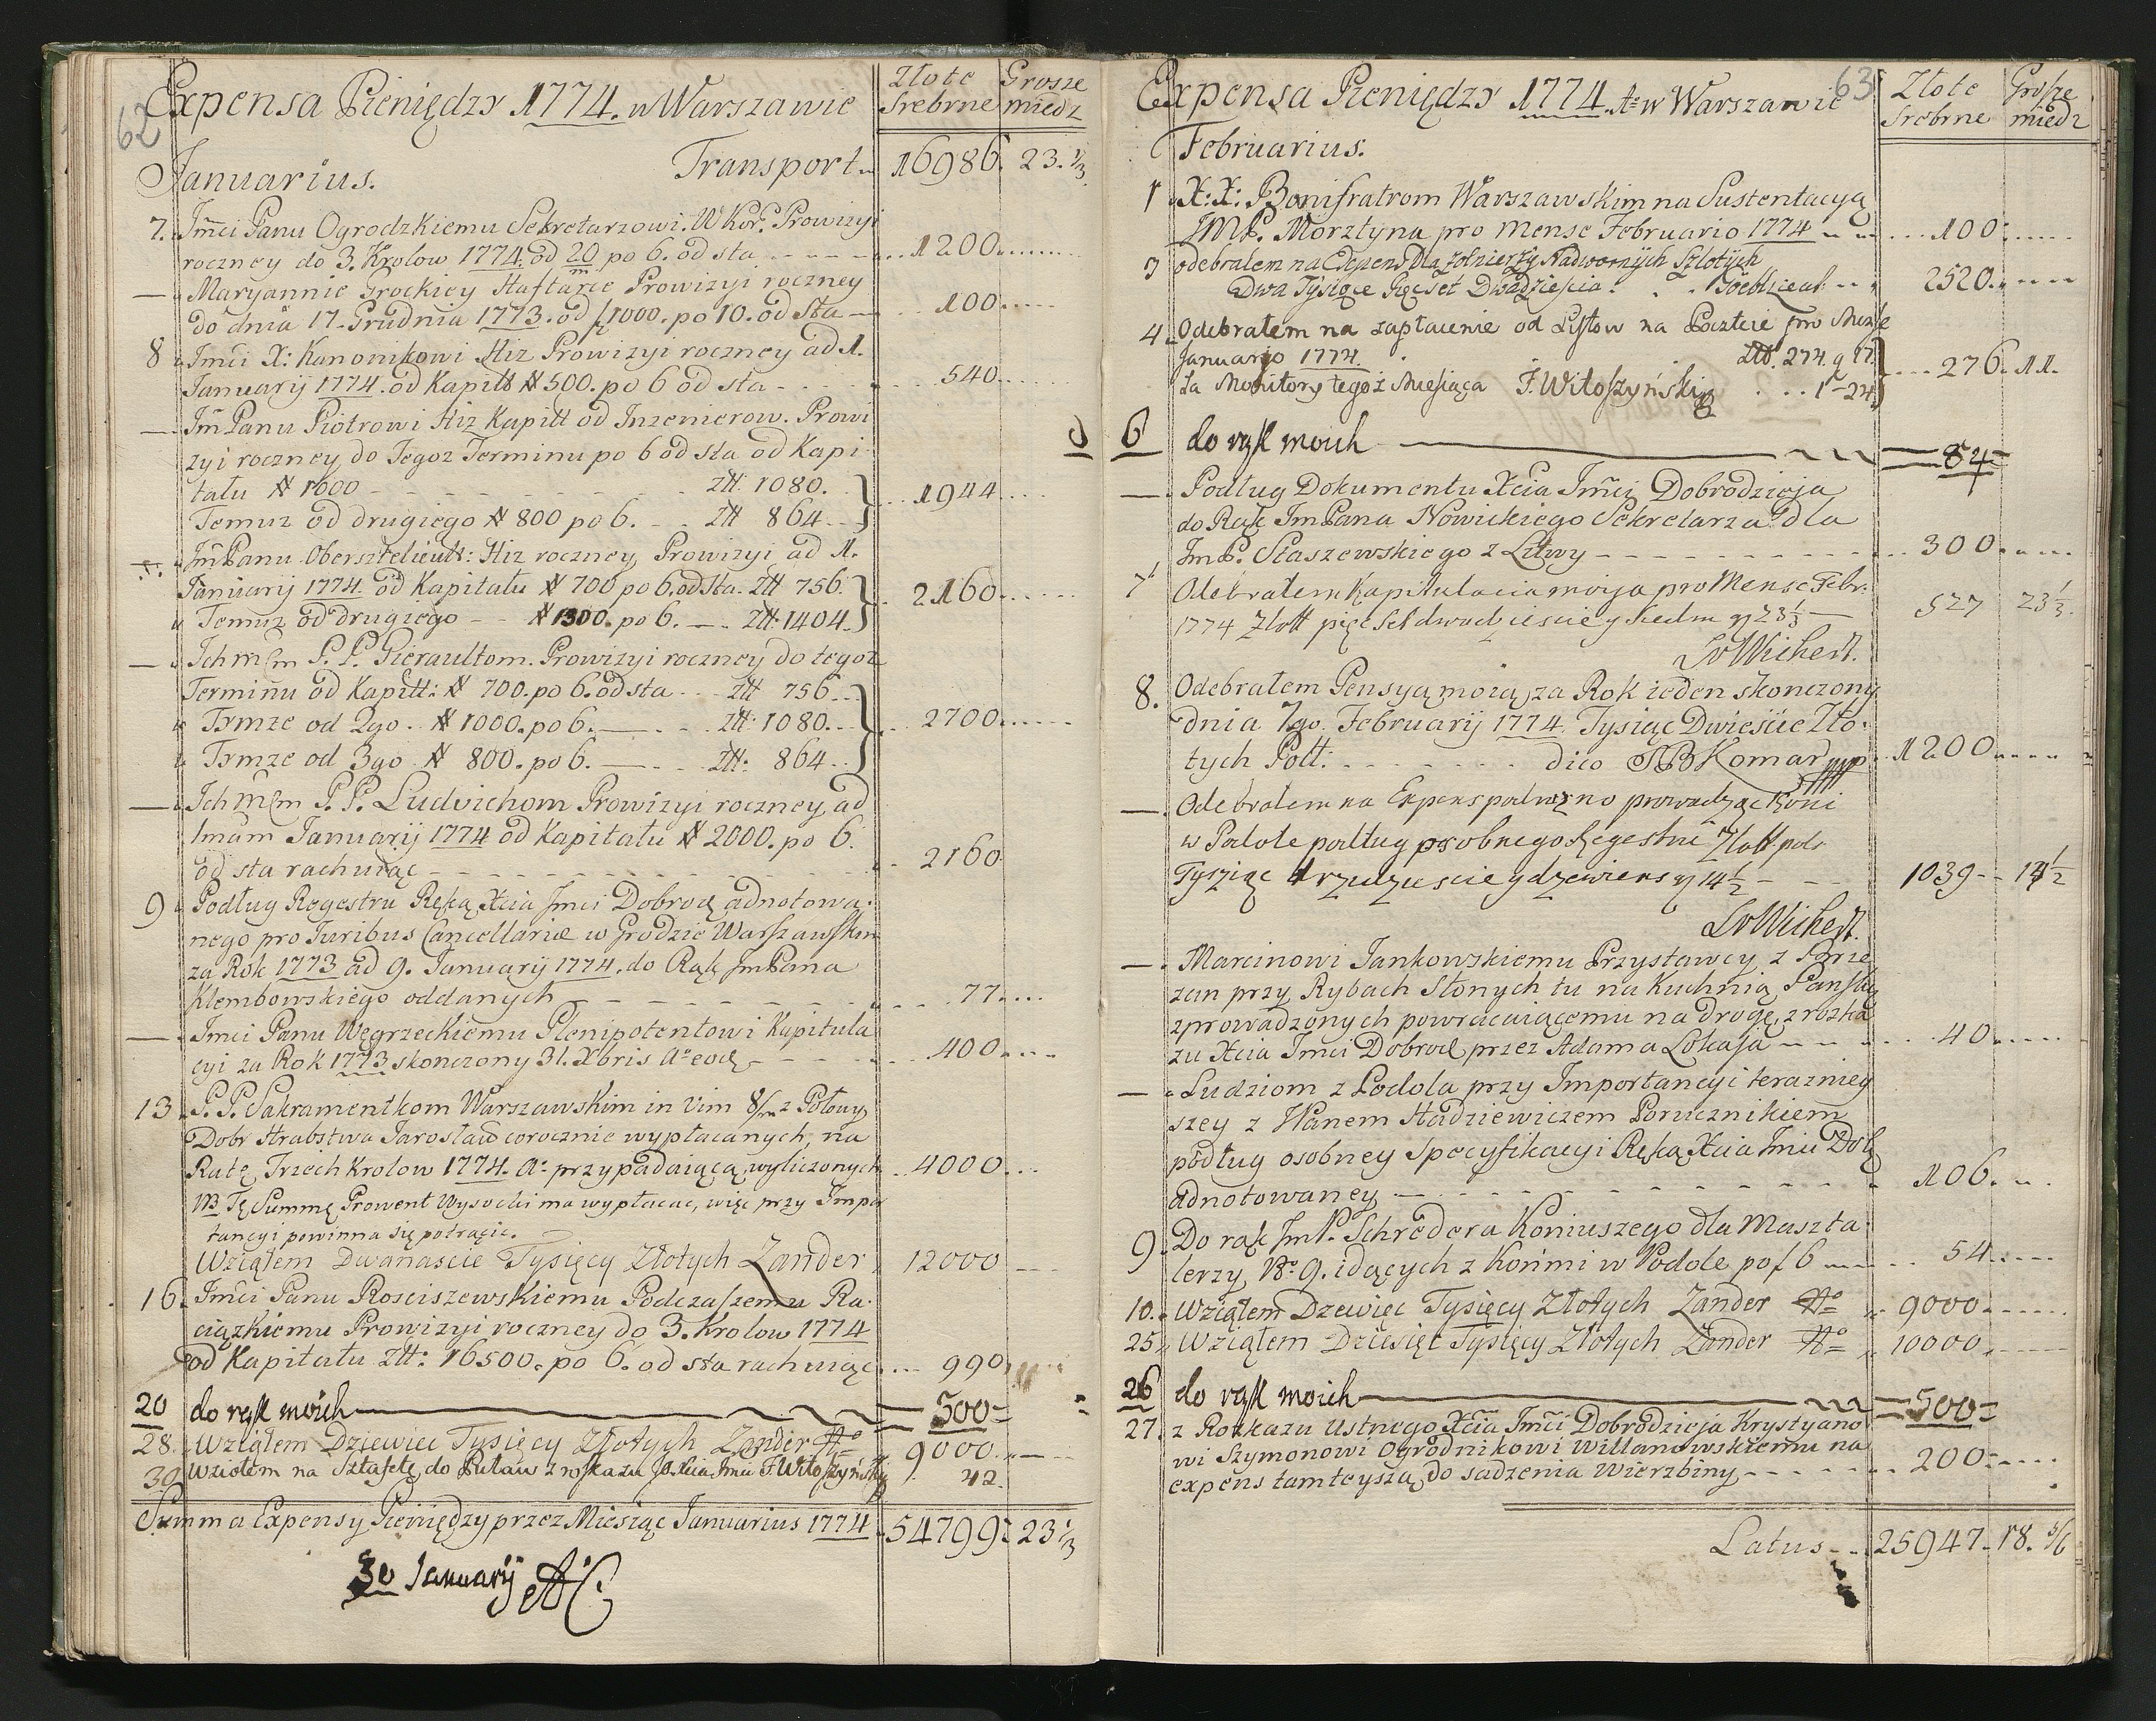 62
Expensa Pieniędzy 1774. w Warszawie
Złote Srebrne
Grosze miedz
Januarius.
Transport. 16986. 23. 1/3.
7. Jmci Panu Ogrodzkiemu Sekretarzowi. W Kor. Prowizyi
roczney do 3. Krolow 1774. od 20/m po 6. od sta 1200.
— Maryannie Grockiey Haftarce Prowizyi roczney
do dnia 17. Grudnia 1773. od # 1000. po 10. od sta 100.
8 Jmci X: Kanonikowi Hiz Prowizyi roczney ad 1.
Januarij 1774. od Kapitt # 500. po 6 od sta 540.
— Jm Panu Piotrowi Hiz Kapitt od Inzenierow. Prowi
zyi roczney do Tegoz Terminu po 6 od sta od Kapi
tału # 1000 Ztt. 1080.
Temuz od drugiego # 800 po 6. Ztt 864. 1944
— Jm Panu Obersztelieutt: Hiz roczney Prowizyi ad 1.
Januarij 1774. od Kapitału # 700 po 6. od Sta. Ztt 756.
" Temuz od drugiego # 1300. po 6. Ztt. 1404. 2160.
— Ichmcm P. P. Pieraultom. Prowizyi roczney do tegoz
Terminu od Kapitt: # 700. po 6. od sta Ztt 756.
" Tymze od 2go # 1000. po 6. Ztt: 1080.
" Tymze od 3go # 800. po 6. Ztt: 864. 2700.
— Ichmcm P. P. Ludvichom Prowizyi roczney ad
1mam Januarij 1774 od Kapitału # 2000. po 6.
od sta rachuiąc 2160
9 Podług Regestru Ręką Xcia Jmci Dobrod adnotowa
nego pro Juribus Cancellariæ w Grodzie Warszawskim
za Rok 1773 ad 9. Januarij 1774. do Rąk Jm Pana
Klembowskiego oddanych 77.
— Jmci Panu Węgrzeckiemu Plenipotentowi Kapitula
cyi za Rok 1773 skonczony 31. Xbris Ao eod 400.
13. P. P. Sakramentkom Warszawskim in vim 8/m z Połowy
Dobr Hrabstwa Jarosław corocznie wypłacanych, na
Ratę Trzech Krolow 1774. Ao przypadaiącą, wyliczonych 4000.
NB Tę Summę Prowent Wysocki ma wypłacac, więc przy Impor
tancyi powinna się potrącic.
Wziąłem Dwanascie Tysięcy Złotych Zander 12000
16. Jmci Panu Rosciszewskiemu Podczaszemu Ra
ciązkiemu Prowizyi roczney do 3. Krolow 1774
od Kapitału Ztt: 16500. po 6. od sta rachuiąc 990.
20 do rąk moich 500
28. Wziąłem Dziewiec Tysięcy Złotych Zander 9000
30 Wziołem na Sztafetę do Puław z roskazu Xcia Jmci F. Witoszyński 42.
Summa Expensy Pieniędzy przez Miesiąc Januarius 1774 54799 23 1/3
30 January AC
63
Expensa Pieniędzy 1774. Ao w Warszawie
Złote Srebrne
Grosze miedz
Februarius.
1 X: X: Bonifratrom Warszawskim na Sustentacyą
JMP. Morztyna pro Mense Februario 1774 100
3 odebrałem na Expens Dla Zołnierzy Nadwornych Szlotych
Dwa Tysiące Pięcset Dwadziescia 2520.
4. Odebrałem na zapłacenie od Listow na Poczcie pro Mense
Januario 1774. Ztt. 274. g 17.
za Monitory tegoż Miesiąca F. Witoszyński 1 - 24. 276. 11.
6 do rąk moich 84
— Podług Dokumentu Xcia Jmci Dobrodzieja
do Rąk Jm Pana Nowickiego Sekretarza dla
JmP. Staszewskiego z Litwy 300.
7 Odebrałem Kapitulacia moija pro Mense Febr.
1774 Złott pięc Set dwadziescie y Siedm g 23 1/3 527 23 1/3.
LvWichert.
8. Odebrałem Pensyą moią, za Rok ieden skonczony
dnia 7go Februarij 1774. Tysiąc Dwiescie Zło
tych Poll: dico Komar mp 1200.
— Odebrałem na Expens podrużno prowadząc Koni
w Podole podług osobnego Regestru Złott pols
Tysziąc trzydziescie y dziewiens g 14 1/2 1039 14 1/2
LvWichert.
— Marcinowi Jankowskiemu Przystawcy z Brze
zan przy Rybach Słonych tu na Kuchnią Pańską
zprowadzonych powracaiącemu na drogę, z rozka
zu Xcia Jmci Dobrod przez Adama Lokaja 40.
— Ludziom z Podola przy Importancyi terazniey
szey z Wanem Hadziewiczem Porucznikiem
podług osobney Specyfikacyi Ręką Xcia Jmci Dob
adnotowaney 106.
9. Do rąk JmP. Schrödera Koniuszego dla Maszta
lerzy No 9. idących z Końmi w Podole po f 6 54.
10. Wziąłem Dzewięc Tysięcy Złotych Zander 9000
25 Wziąłem Dziesięc Tysięcy Złotych Zander 10000
26 do rąk moich 500
27. z Rozkazu Ustnego Xcia Jmci Dobrodzieja Krystyano
wi Szymonowi Ogrodnikowi Willanowskiemu na
expens tamteyszą do sadzenia Wierzbiny 200.
Latus 25947. 18. 5/6